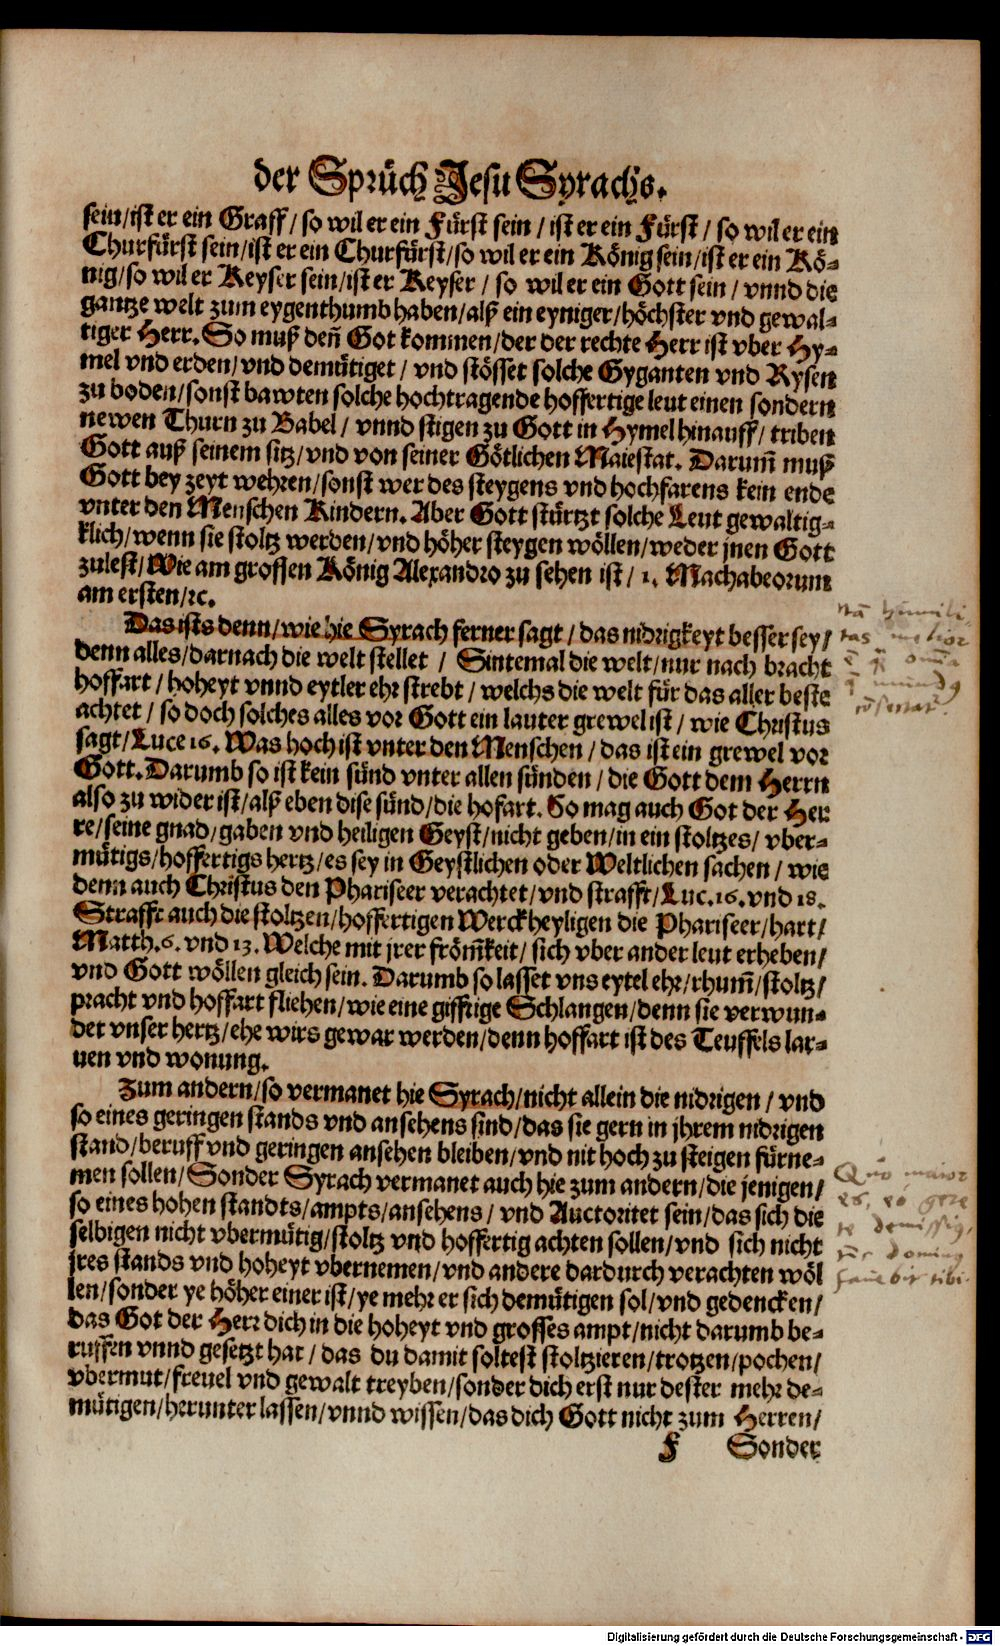 der Sprüch Jesu Syrachs.
sein/ist er ein Graff/ so wil er ein Fürst sein / ist er ein Fürst / so wil er ein
Churfürst sein/ist er ein Churfürst/so wil er ein König sein/ist er ein Kö-
nig/so wil er Keyser sein/ist er Keyser / so wil er ein Gott sein / vnnd die
gantze welt zum eygenthumb haben/alß ein eyniger/höchster vnd gewal-
tiger Herr. So muß deñ Got kommen/der der rechte Herr ist vber Hy-
mel vnd erden/vnd demütiget / vnd stösset solche Gyganten vnd Rysen
zu boden/sonst bawten solche hochtragende hoffertige leut einen sondern
newen Thurn zu Babel / vnnd stigen zu Gott in Hymel hinauff/ triben
Gott auß seinem sitz/vnd von seiner Götlichen Maiestat. Darum̃ muß
Gott bey zeyt wehren/sonst wer des steygens vnd hochfarens kein ende
vnter den Menschen Kindern. Aber Gott stürtzt solche Leut gewaltig-
klich/wenn sie stoltz werden/vnd höher steygen wöllen/weder jnen Gott
zulest/Wie am grossen König Alexandro zu sehen ist/ 1. Machabeorum
am ersten/ꝛc.
Das ists denn/wie hie Syrach ferner sagt/das nidrigkeyt besser sey/
denn alles/darnach die welt stellet / Sintemal die welt/nur nach bracht
hoffart / hoheyt vnnd eytler ehr strebt / welchs die welt für das aller beste
achtet / so doch solches alles vor Gott ein lauter grewel ist / wie Christus
sagt/Luce 16. Was hoch ist vnter den Menschen / das ist ein grewel vor
Gott. Darumb so ist kein sünd vnter allen sünden / die Gott dem Herrn
also zu wider ist/alß eben dise sünd/die hofart. So mag auch Got der Her
re/seine gnad/gaben vnd heiligen Geyst/nicht geben/in ein stoltzes/ vber-
mütigs/hoffertigs hertz/es sey in Geystlichen oder Weltlichen sachen / wie
denn auch Christus den Phariseer verachtet/vnd strafft/Luc.16.vnd 18.
Strafft auch die stoltzen/hoffertigen Werckheyligen die Phariseer/hart/
Matth.6. vnd 13. Welche mit jrer fröm̃keit/ sich vber ander leut erheben/
vnd Gott wöllen gleich sein. Darumb so lasset vns eytel ehr/rhum̃/stoltz/
pracht vnd hoffart fliehen/wie eine gifftige Schlangen/denn sie verwun-
det vnser hertz/ehe wirs gewar werden/denn hoffart ist des Teuffels lar-
uen vnd wonung.
Zum andern/so vermanet hie Syrach/nicht allein die nidrigen / vnd
so eines geringen stands vnd ansehens sind/das sie gern in jhrem nidrigen
stand/beruff vnd geringen ansehen bleiben/vnd nit hoch zu steigen fürne-
men sollen/Sonder Syrach vermanet auch hie zum andern/die jenigen/
so eines hohen standts/ampts/ansehens/ vnd Auctoritet sein/das sich die
selbigen nicht vbermütig/stoltz vnd hoffertig achten sollen/vnd sich nicht
jres stands vnd hoheyt vbernemen/vnd andere dardurch verachten wöl
len/sonder ye höher einer ist/ye mehr er sich demütigen sol/vnd gedencken/
das Got der Herr dich in die hoheyt vnd grosses ampt/nicht darumb be-
ruffen vnnd gesetzt hat / das du damit soltest stoltzieren/trotzen/pochen/
vbermut/freuel vnd gewalt treyben/sonder dich erst nur dester mehr de-
mütigen/herunter lassen/vnnd wissen/das dich Gott nicht zum Herren/
F Sonder
humili
tas melior
Quo maior
es,
faue bit tibi
Digitalisierung gefördert durch die Deutsche Forschungsgemeinschaft - DFG